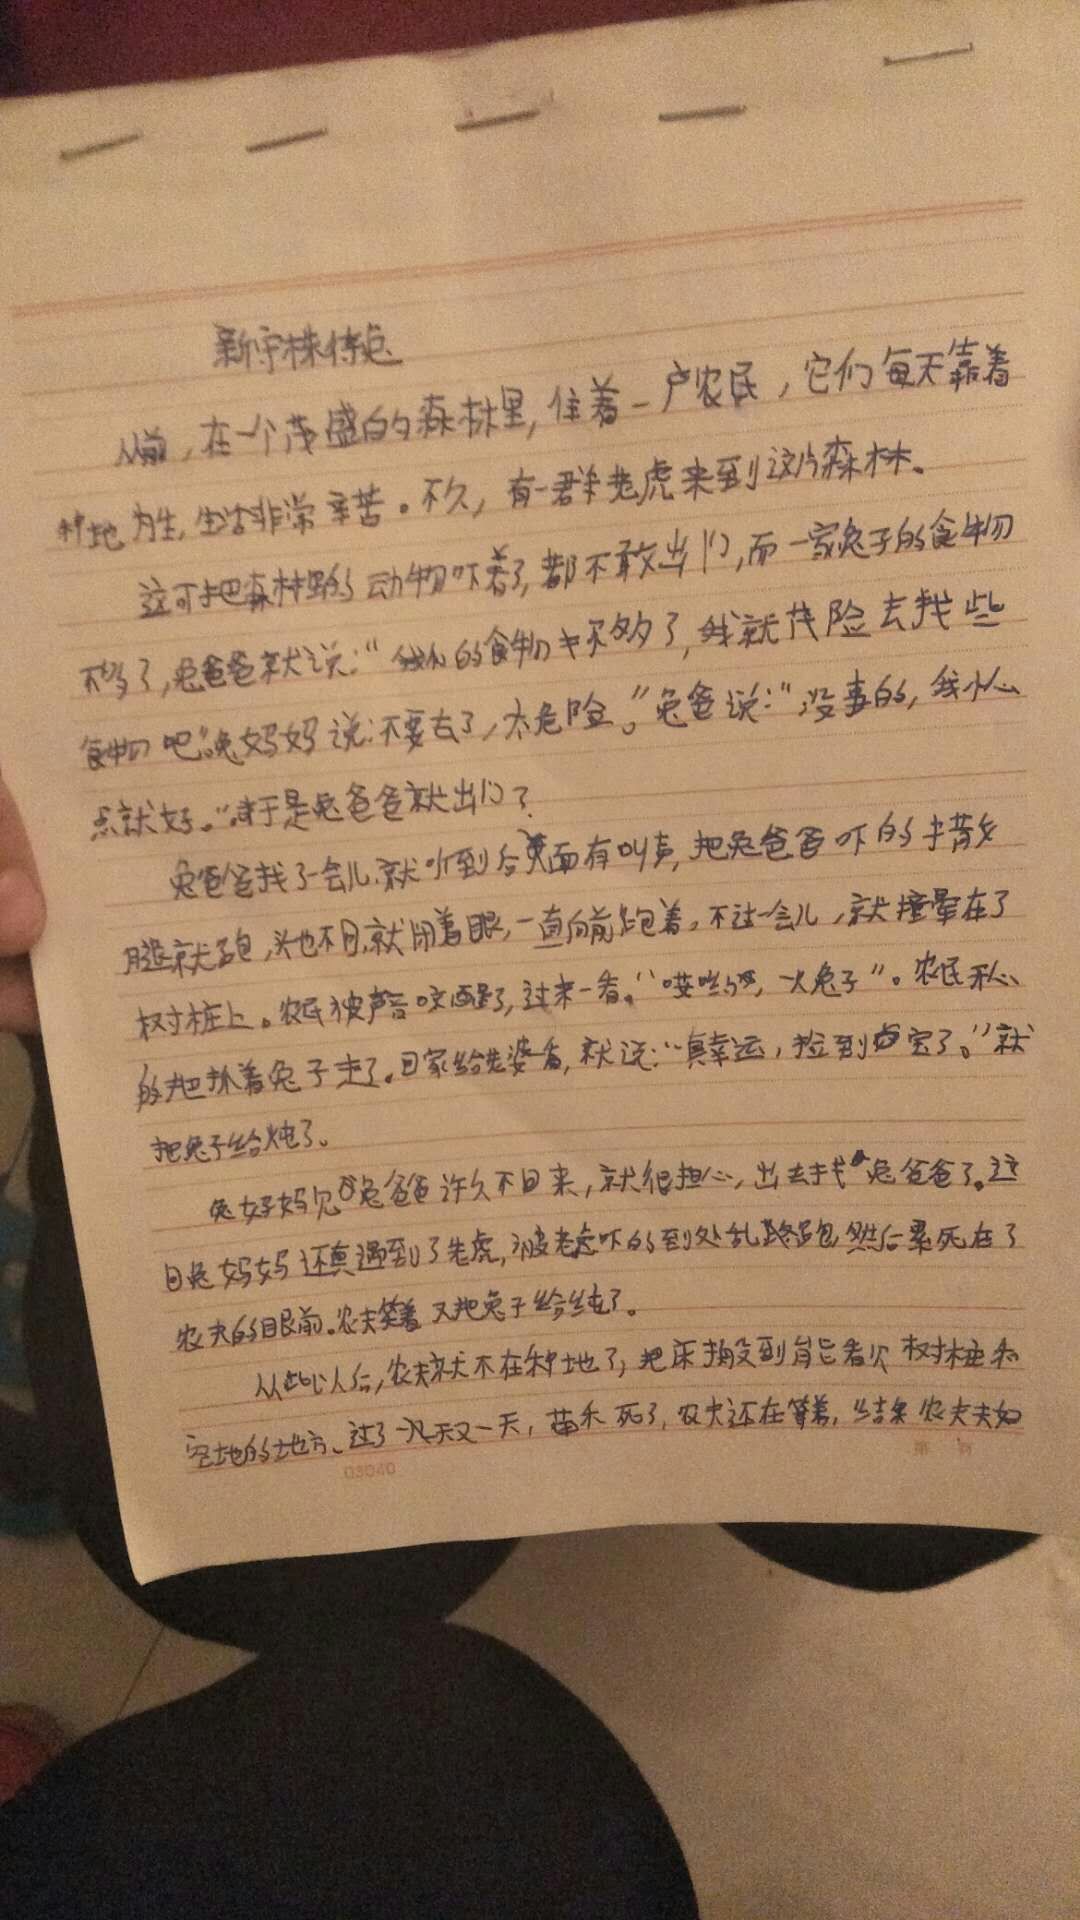 新守株待兔
从前，在一个茂盛的森林里，住着一户农民，它们每天靠着
种地为生，生活非常辛苦。不久，有一群老虎来到这片森林。
这可把森林里的动物吓着了，都不敢出门，而一家兔子的食物
不够了，兔爸爸就说：“我们的食物也不够了，我就茂险去找些
食物吧”兔妈妈说：不要去了，太危险。”兔爸说：“没事的，我小心
点就好。”于是兔爸爸就出门了
兔爸爸找了一会儿，就听到后面有叫声，把兔爸爸吓的才散
腿就跑，头也不回，就闭着眼，一直向前跑着，不过一会儿，就撞晕在了
树桩上。农民被声音吵醒了，过来一看。“哎呦，一只兔子”。农民开心
的把抓着兔子走了。回家给老婆看，就说：“真幸运，捡到宝了。”就
把兔子给炖了。
兔妈妈见兔爸爸许久不回来，就很担心，出去找兔爸爸了。这
日兔妈妈还真遇到了老虎，被老虎吓的到处乱跑，然后累死在了
农夫的眼前。农夫笑着又把兔子给炖了。
从此以后，农夫就不在种地了，把床搬到能看见树桩和
空地的地方、过了一天又一天，苗禾死了，农夫还在等着，结果农夫夫妇
03040
第 页